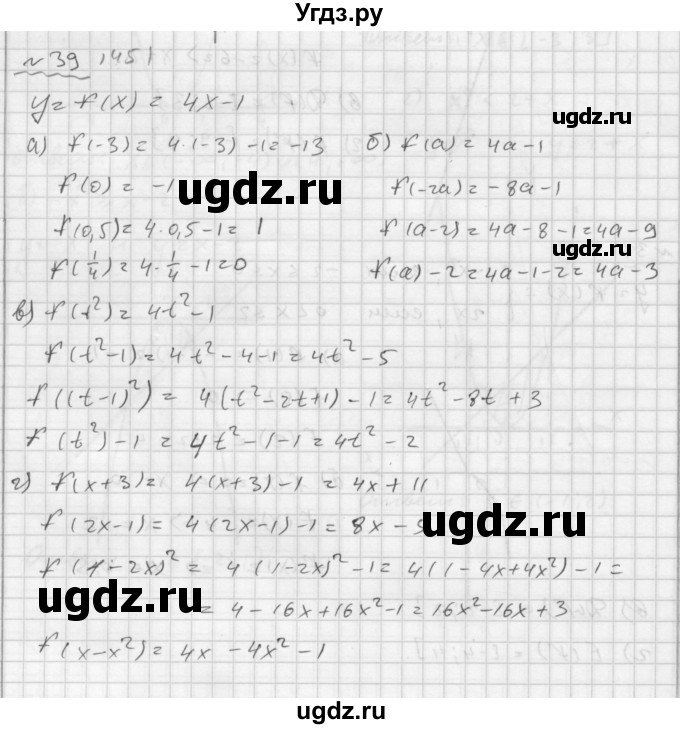 Угдз.ру
№39 (451)
y = f(x) = 4x-1
а) f(-3) = 4·(-3) -1 = -13
f(0) = -1
f(0,5) = 4·0,5-1 = 1
f(1/4) = 4·1/4 -1 = 0
б) f(a) = 4a-1
f(-2a) = -8a-1
f(a-2) = 4a-8-1 = 4a-9
f(a)-2 = 4a-1-2 = 4a-3
в) f(t²) = 4t²-1
f(t²-1) = 4t²-4-1 = 4t²-5
f((t-1)²) = 4(t²-2t+1)-1 = 4t²-8t+3
f(t²)-1 = 4t²-1-1 = 4t²-2
г) f(x+3) = 4(x+3)-1 = 4x+11
f(2x-1) = 4(2x-1)-1 = 8x-5
f(1-2x)² = 4(1-2x)²-1 = 4(1-4x+4x²)-1 =
= 4-16x+16x²-1 = 16x²-16x+3
f(x-x²) = 4x-4x²-1
ugdz.ru
ugdz.ru
ugdz.ru
ugdz.ru
ugdz.ru
ugdz.ru
ugdz.ru